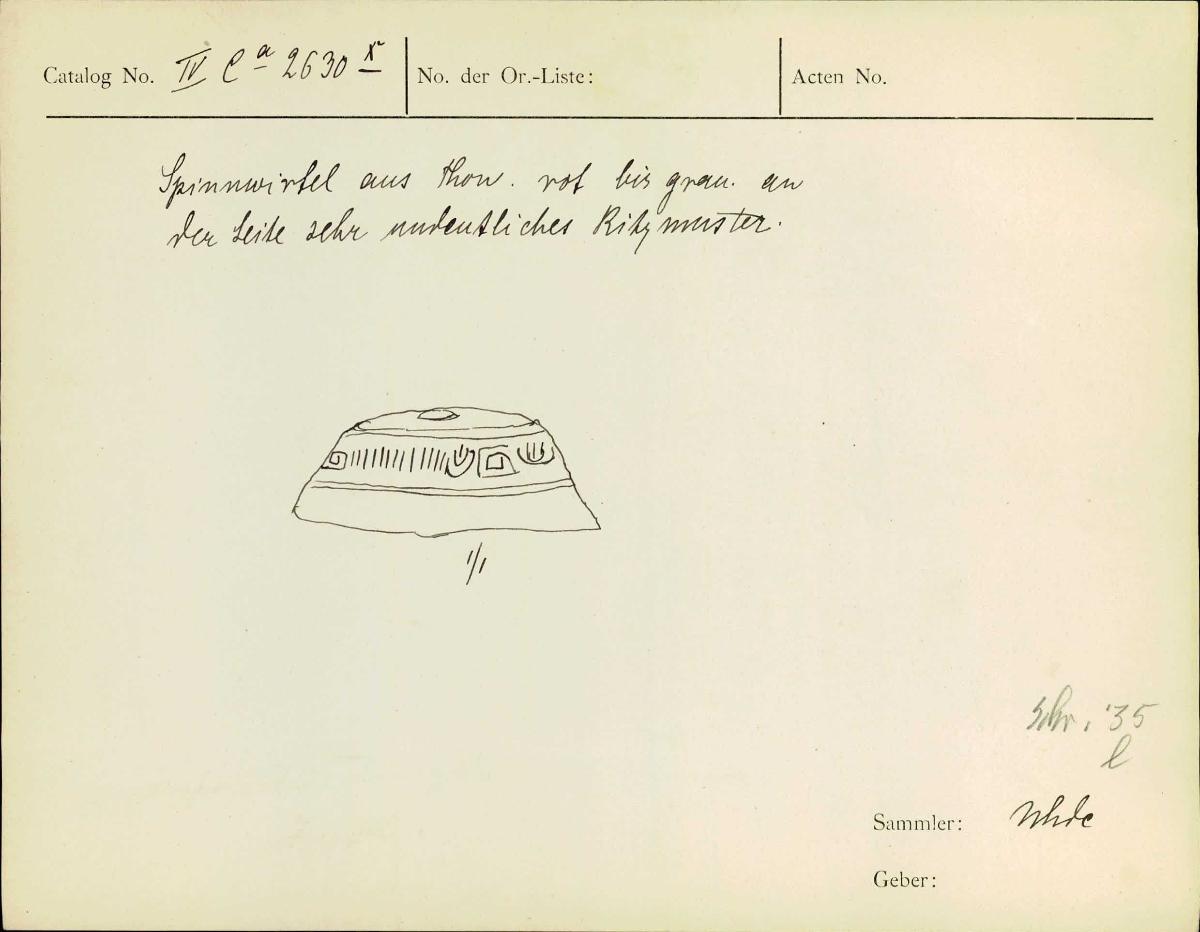 Catalog No. IV Ca 2630 x² No. der Or.-Liste: Acten No.
Spinnwirtel aus Thon. rot bis grau. an
der Seite sehr undeutliches Ritzmuster.
1/1
Schr. '35
l
Sammler: Uhde
Geber: